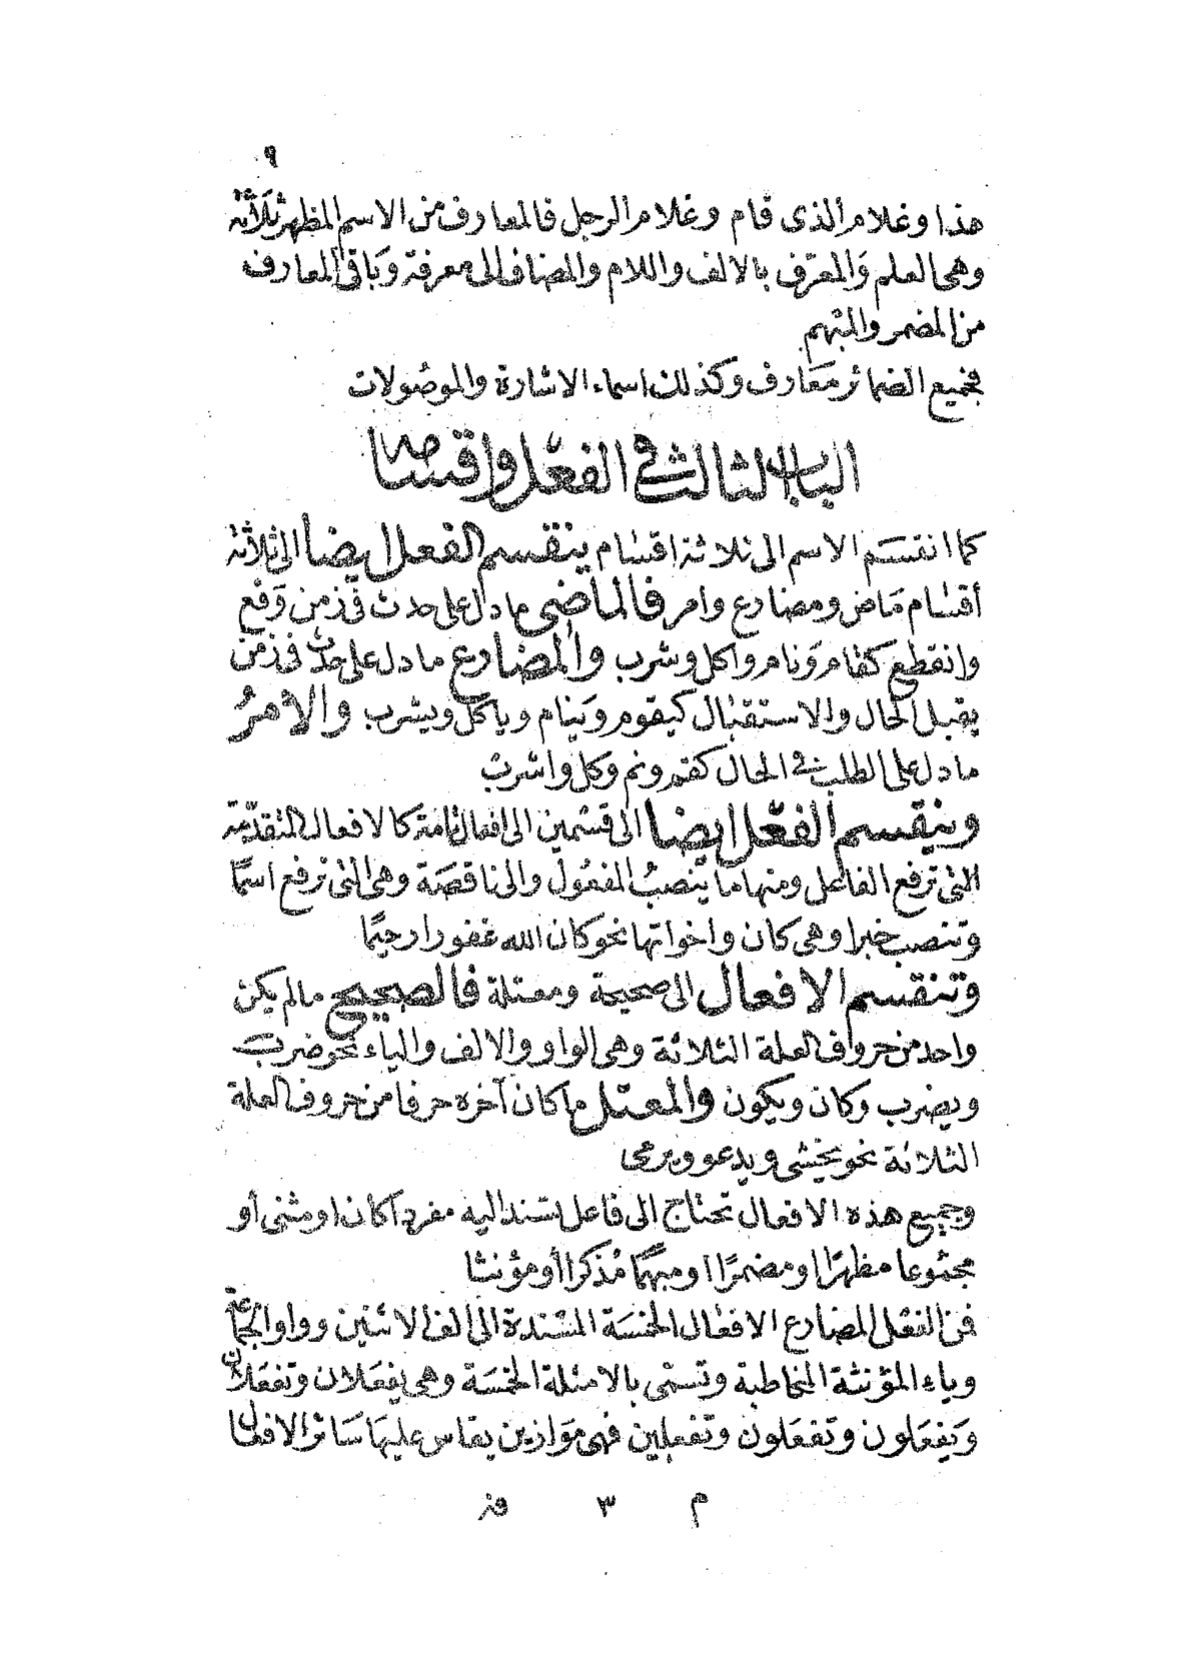 ٩
هذا وغلام الذى قام وغلام الرجل فالمعارف من الاسم المظهر ثلاثة
وهى العلم والمعرّف بالالف واللام والمضاف الى معرفة وَباقى المعارف
من المضمر والمبهم
فجميع الضمائر مَعَارف وكذلك اسماء الاشارة والموصُولات
الباب الثالث فى الفعل واقسامه
كما انقسَم الاسم الى ثلاثة اقسَام ينقسم الفعل ايضا الى ثلاثة
أقسَام مَاض ومضارع وامر فالماضى ما دل على حدث فى زمن وَقع
وانقطع كقَام وَنام واكل وشرب والمضارع ما دل على حدث فى زمن
يقبل الحال والاستقبَال كيقوم وَينام وياكل ويشرب والامرُ
ما دل على الطلب فى الحال كقم ونم وكل واشرب
وينقسم الفعل ايضا الى قسمين الى افعال تامة كالافعال المتقدّمة
التى ترفع الفاعل ومنها ما يَنصبُ المفعُول والى ناقصَة وهى التى ترفع اسمًا
وتنصب خبرا وهى كان واخواتها نحو كان الله غفورا رحيمًا
وتنقسم الافعال الى صحيحة ومعتلة فالصحيح ما لم يكن
واحد من حروف العلة الثلاثة وهى الواو والالف والياء نحو ضرب
ويضرب وكان ويكون والمعتل ما كان آخره حرفا من حروف العلة
الثلاثة نحو يخشى ويدعو ويرمى
وجميع هذه الافعال تحتاج الى فاعل تسند اليه مفردا كان او مثنى أو
مجمُوعا مظهرًا او مضمرًا او مبهمًا مُذكرا أو مؤنثا
فمن الفعْل المضارع الافعَال الخمسَة المسْندة الى الف الاثنين وواو الجمَاعة
وياء المؤنثة المخاطبة وتسَمّى بالامثلة الخمسَة وهى يفعَلان وتفعَلان
وَيفعَلون وتفعَلون وتفعلين فهى مَوازين يقاس عليهَا سَائر الافعال
م ٣ فد